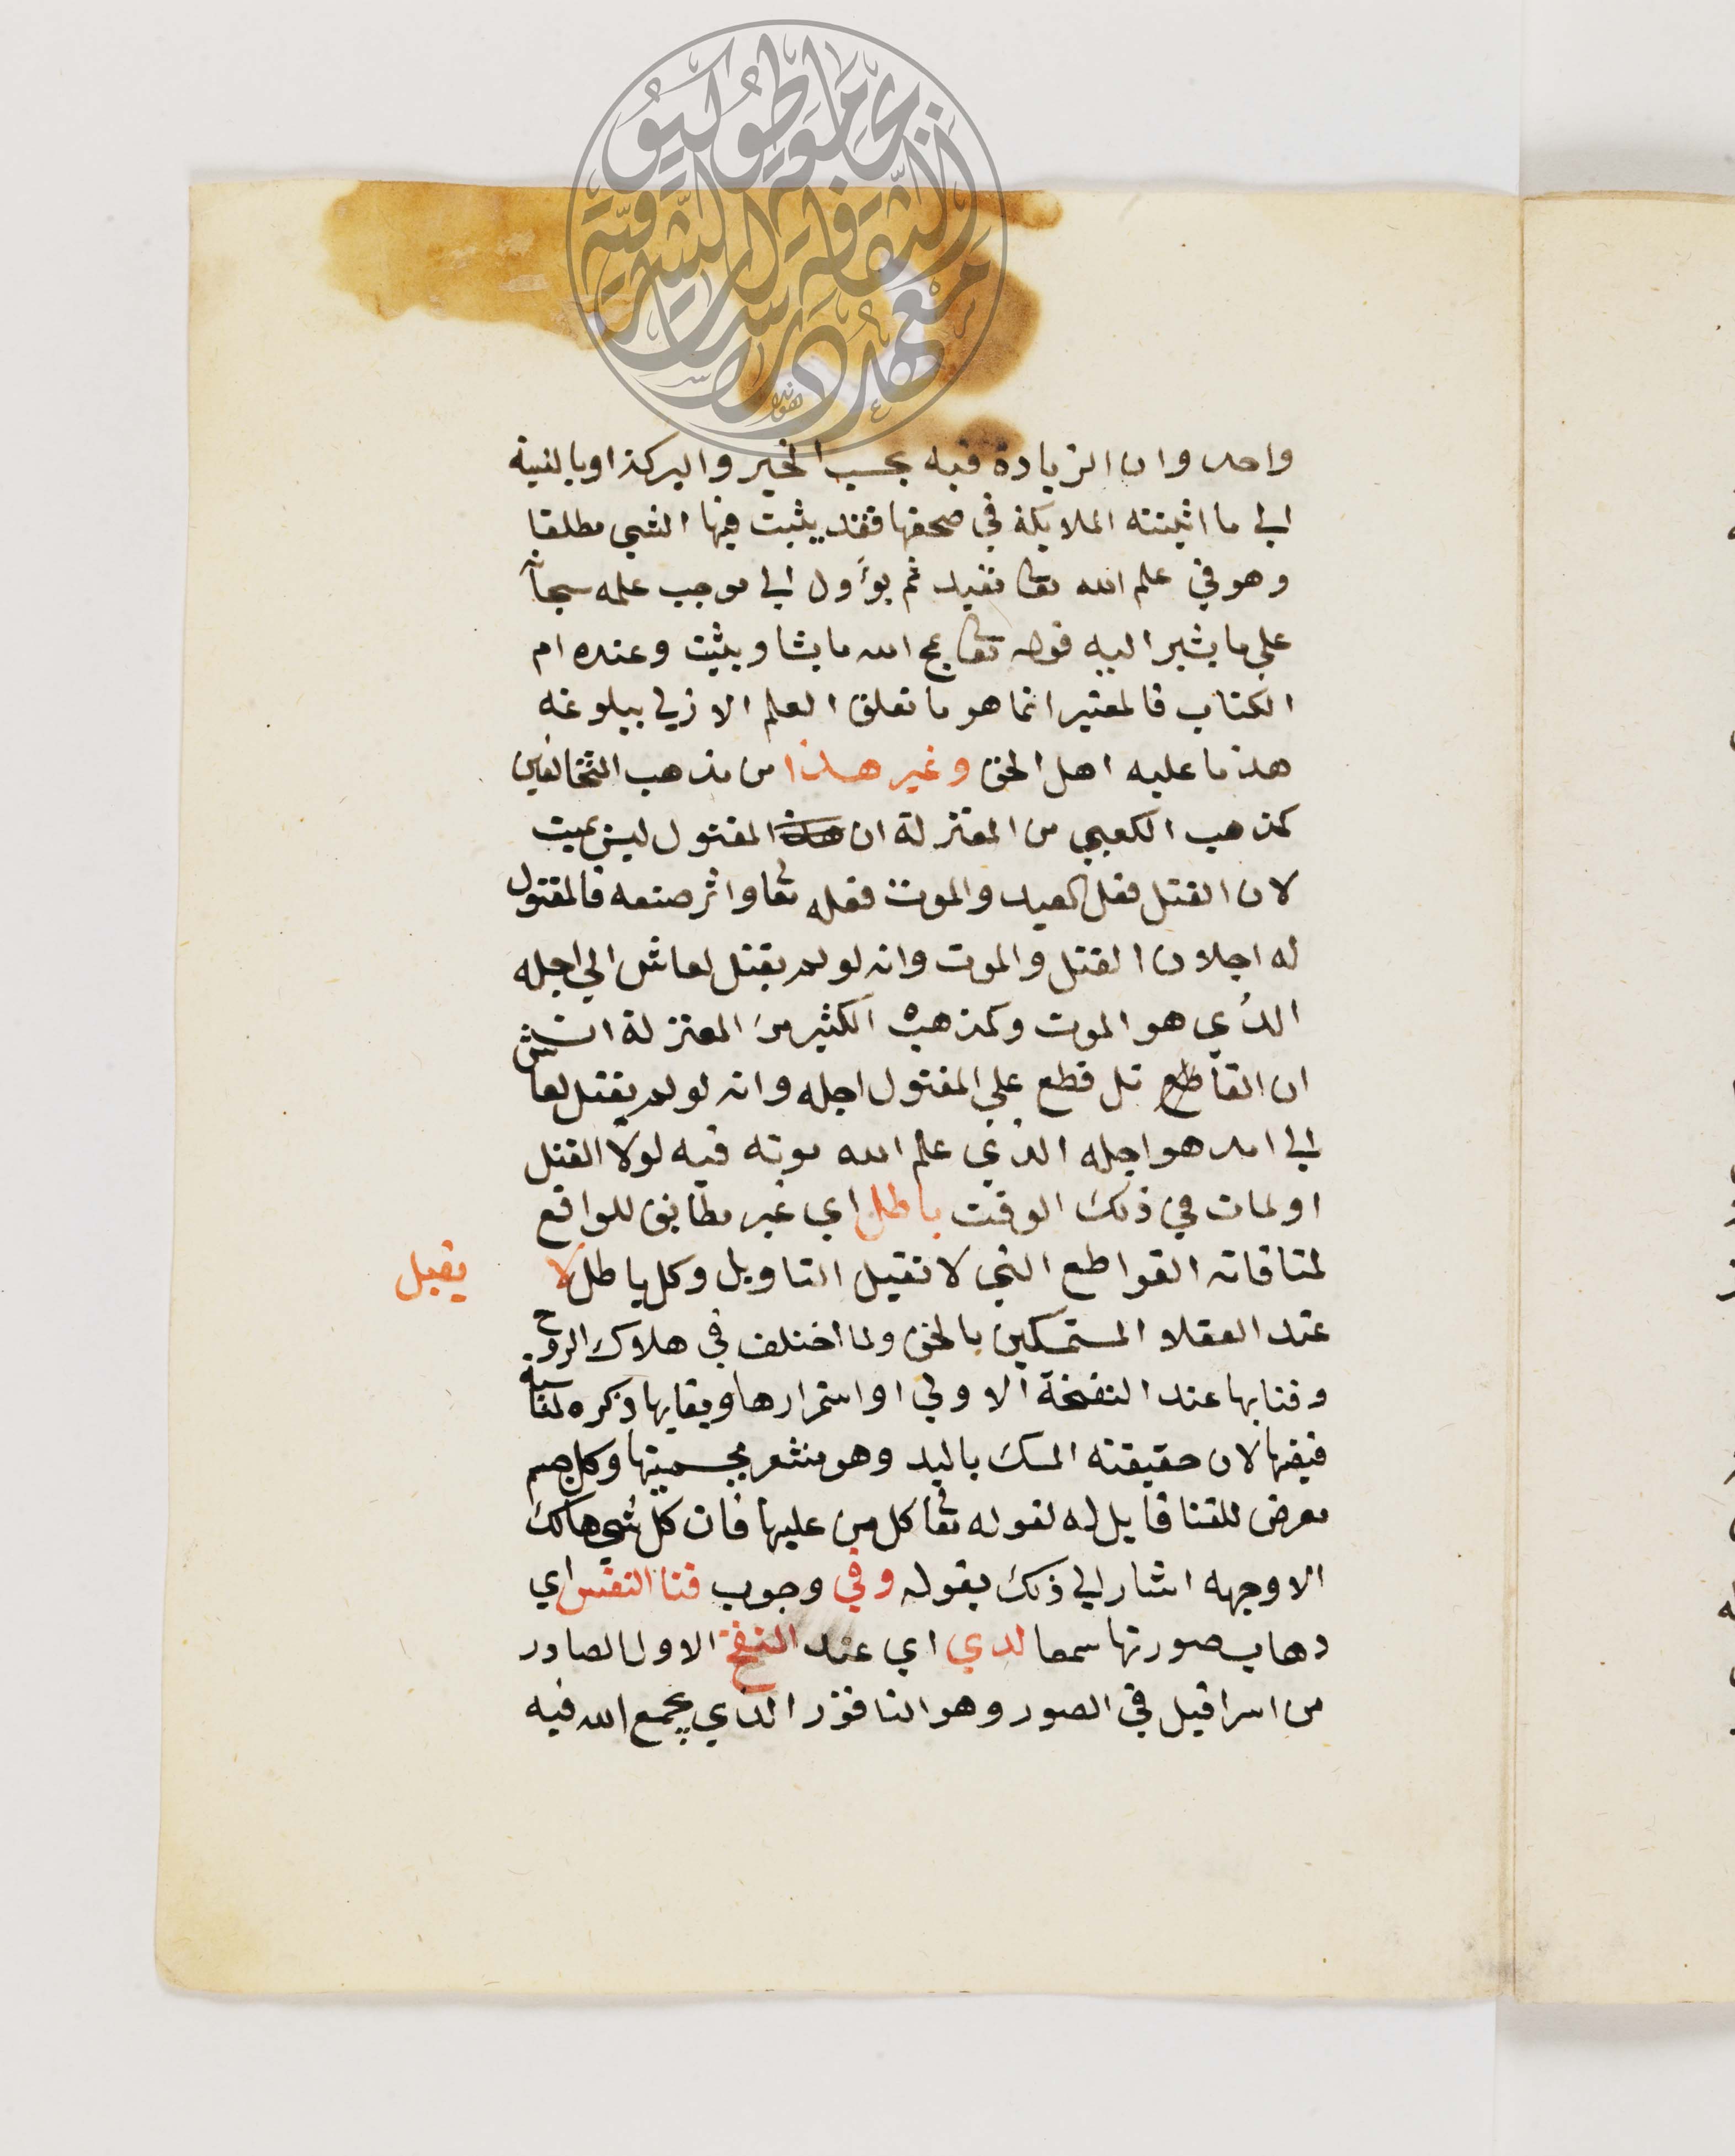 واحد وان الزيادة فيه بحسب الخير والبركة او بالنسبة
الي ما اثبتته الملايكة في صحفها فقد يثبت فيها الشي مطلقا
وهو في علم الله تعا مقيد ثم يوءول الي موجب علمه سبحا
علي ما يشير اليه قوله تعا يمح الله ما يشا ويثبت وعنده ام
الكتاب فالمعتبر انما هو ما تعلق العلم الازلي ببلوغه
هذ ما عليه اهل الحق وغير هذا من مذهب المخالفين
كمذهب الكعبي من المعتزلة ان المقتول ليس بميت
لان القتل فعل العبد والموت فعله تعا واثر صنعه فالمقتول
له اجلان القتل والموت وانه لو لم يقتل لعاش الي اجله
الذي هو الموت وكمذهب الكثير من المعتزلة
ان القاطع قطع علي المقتول اجله وانه لو لم يقتل لعاش
الي امد هو اجله الذي علم الله موته فيه لولا القتل
او لمات في ذلك الوقت باطل اي غير مطابق للواقع
لمنافاته القواطع التي لا تقبل التاويل وكل باطل لا يقبل
عند العقلا المستمسكين بالحق ولما اختلف في هلاك الروح
وفنايها عند النفخة الاولي او استمرارها وبقايها ذكره لمناسبة
قبضها لان حقيقته المسك باليد وهو مشعر بجسميتها وكل جسم
معرض للفنا قابل له لقوله تعا كل من عليها فان كل شي هالك
الا وجهه اشار الي ذلك بقوله وفي وجوب فنا النفس اي
دهاب صورتها سمعا لدي اي عند النفخ الاول الصادر
من اسرافيل في الصور وهو الناقور الذي يجمع الله فيه